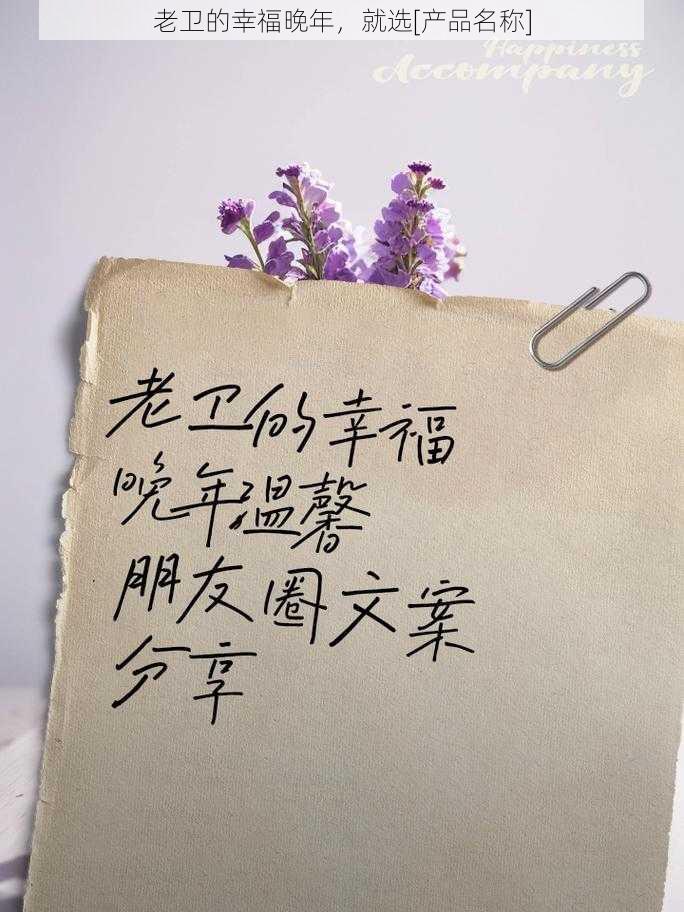 老卫的幸福晚年，就选[产品名称]
Happiness
Accompany
老卫的幸福
晚年温馨
朋友圈文案
分享